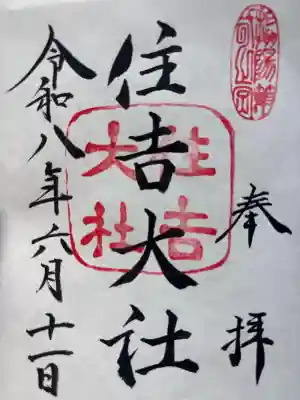 奉拝
住吉大社
住吉
大社
令和八年六月十一日